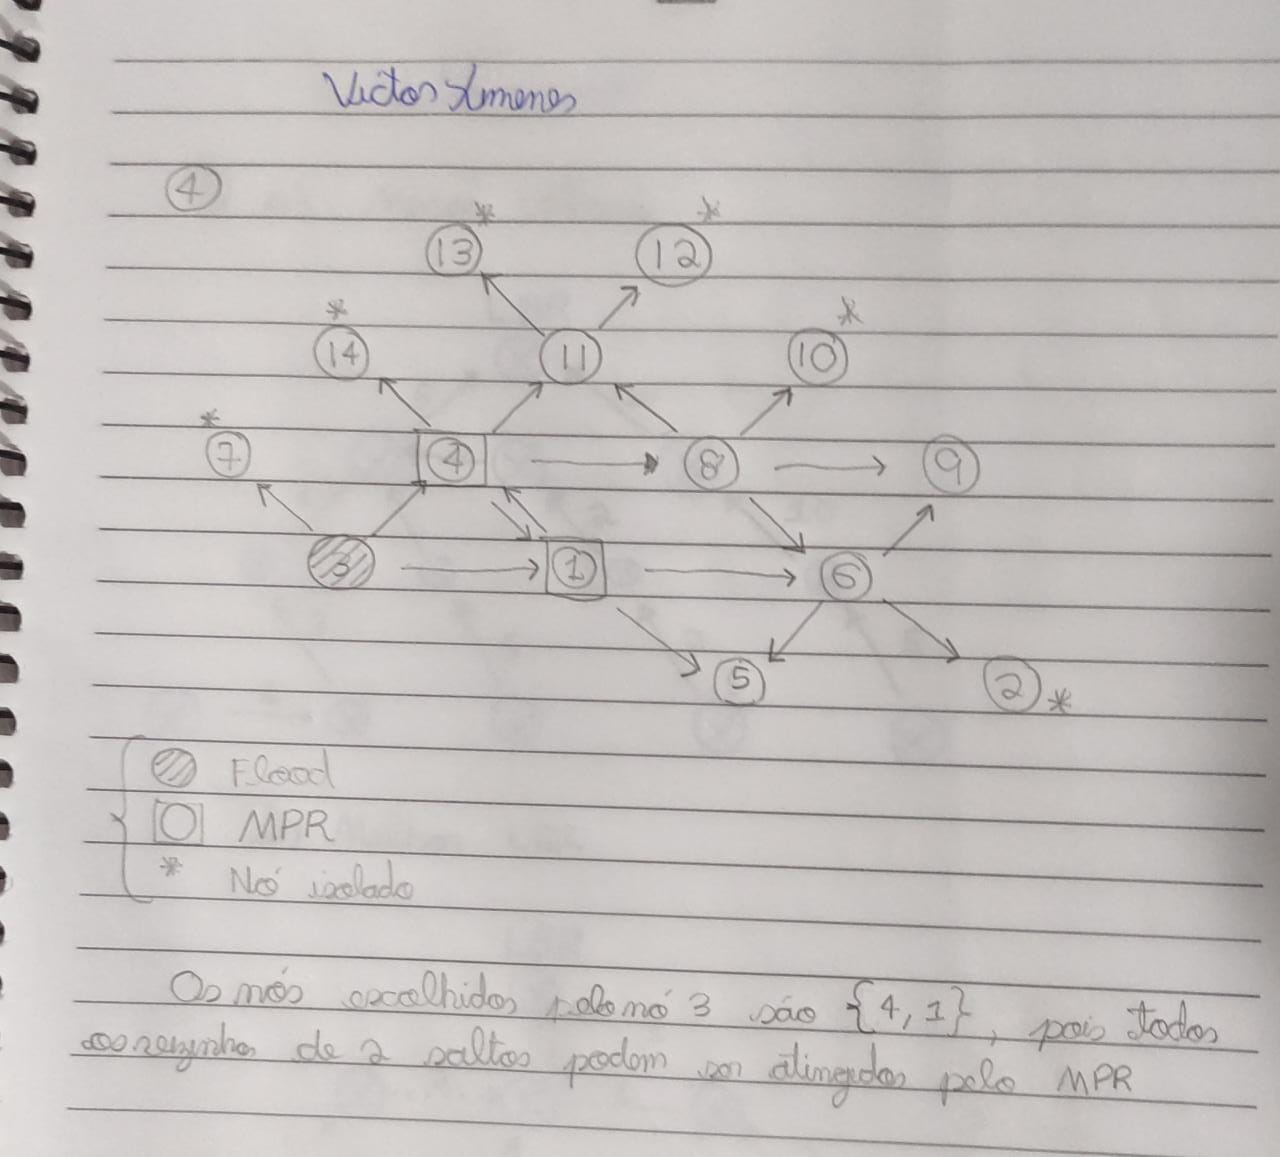 Victor Ximenes
4
13 * 12 *
14 * 11 10 *
7 * 4 8 9
3 1 6
5 2 *
Flood
MPR
* Nó isolado
Os nós escolhidos pelo nó 3 são {4, 1}, pois todos
os vizinhos de 2 saltos podem ser atingidos pelo MPR